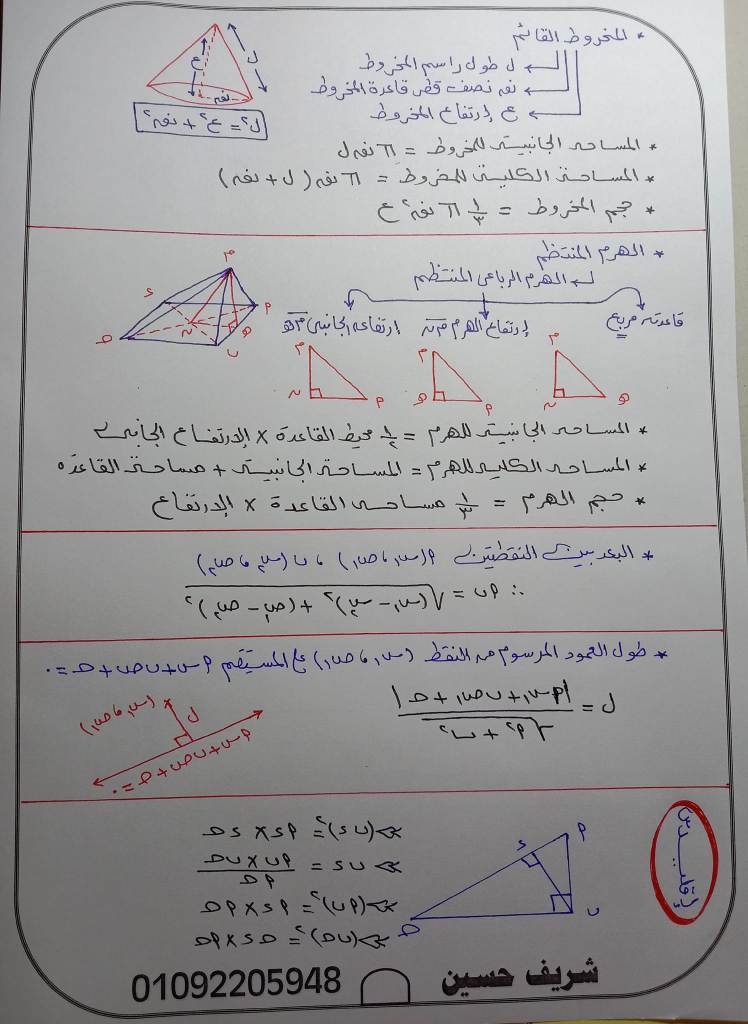 * المخروط القائم
ل طول راسم المخروط
نق نصف قطر قاعدة المخروط
ع إرتفاع المخروط
ل
ع
نق
ل² = ع² + نق²
* المساحة الجانبية للمخروط = π نق ل
* المساحة الكلية للمخروط = π نق (ل + نق)
* حجم المخروط = ١/٣ π نق² ع
* الهرم المنتظم
الهرم الرباعى المنتظم
قاعدته مربع
إرتفاع الهرم م ن
إرتفاعه الجانبى م هـ
م
ء
أ
هـ
ن
ب
حـ
م
ن
أ
م
هـ
أ
م
ن
هـ
* المساحة الجانبية للهرم = ١/٢ محيط القاعدة × الإرتفاع الجانبى
* المساحة الكلية للهرم = المساحة الجانبية + مساحة القاعدة
* حجم الهرم = ١/٣ مساحة القاعدة × الإرتفاع
* البعد بين النقطتين أ (س₁ ، ص₁) ، ب (س₂ ، ص₂)
∴ أب = √(س₁ - س₂)² + (ص₁ - ص₂)²
* طول العمود المرسوم من النقط (س₁ ، ص₁) على المستقيم أس + ب ص + حـ = ٠
ل = |أس₁ + ب ص₁ + حـ| / √أ² + ب²
(س₁ ، ص₁)
ل
أس + ب ص + حـ = ٠
إقليدس
أ
ء
ب
حـ
(ب ء)² = أء × ء حـ
ب ء = أب × ب حـ / أحـ
(أب)² = أء × أحـ
(ب حـ)² = حـ ء × أحـ
شريف حسين 01092205948